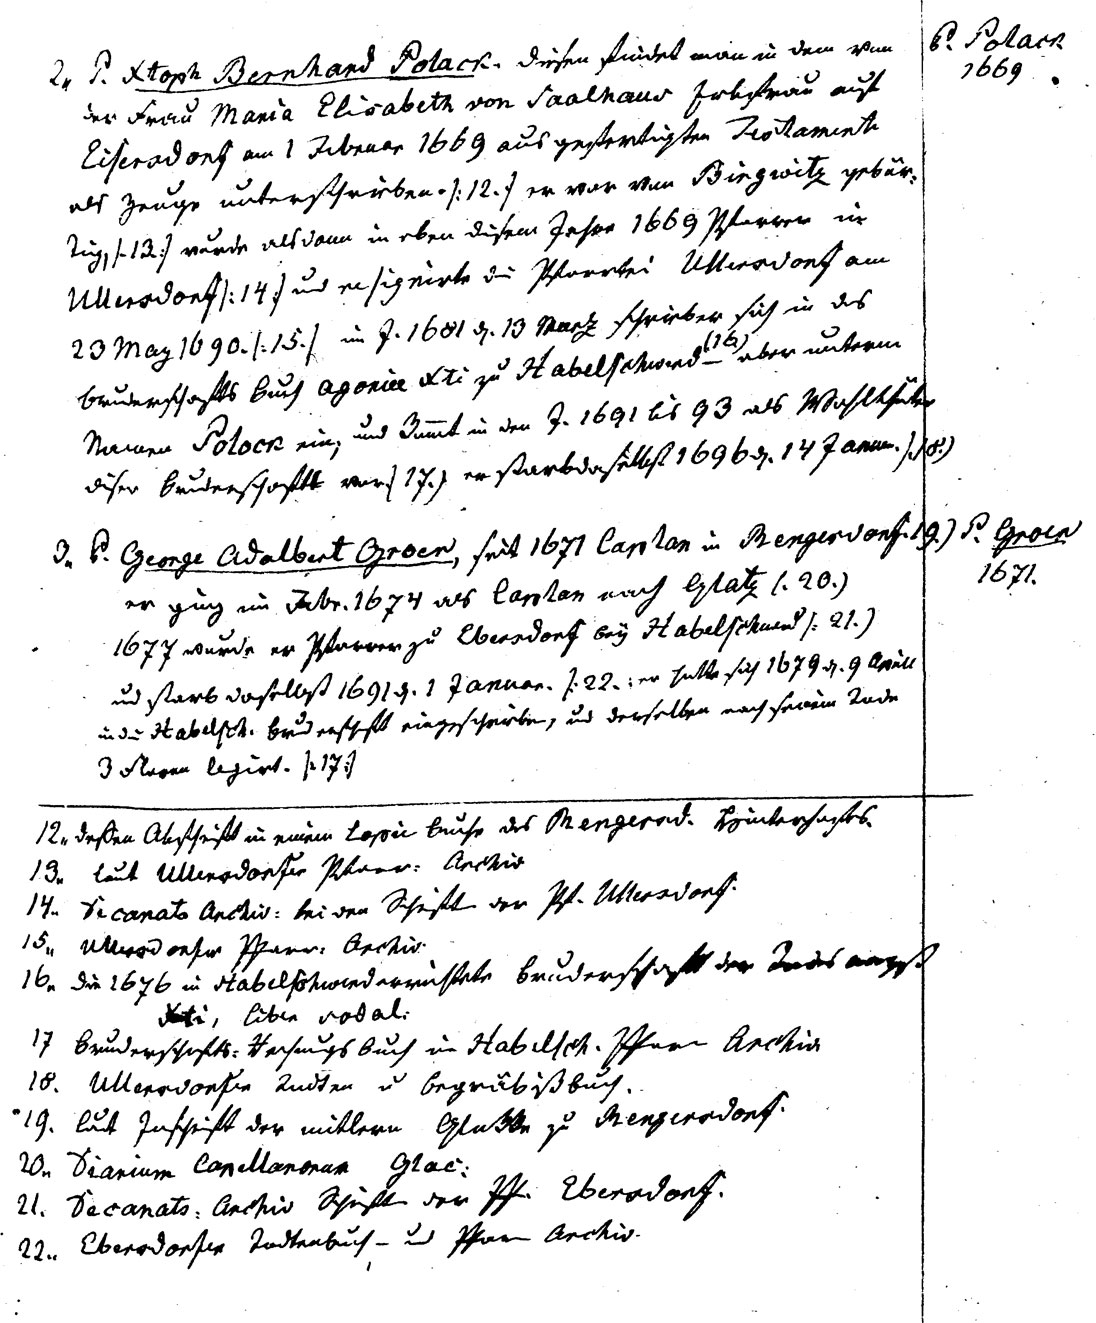 2. P. Xtoph Bernhard Polack. diesen findet man in dem von
der Frau Maria Elisabeth von Saalhaus Erbfrau auf
Eisersdorf am 1 Februar 1669 ausgefertigten Testamente
als Zeuge unterschrieben. /:12.:/ er war von Biegwitz gebür-
tig, /:13:/ wurde alsdann in eben diesem Jahre 1669 Pfarrer in
Ullersdorf /:14:/ und resignirte die Pfarrtei Ullersdorf am
23 May 1690. /:15./ im J. 1681 d. 13 Martz schrieber sich in das
bruderschafts buch agoniae Xti zu Habelschwerd (16) aber unterm
Namen Polock ein, und kommt in den J. 1691 bis 93 als
diser bruderschafft vor /17./ er starb daselbst 1696 d. 14 Januar. /:18:)
P. Polack
1669
3. P. George Adalbert Groer, seit 1671 Caplan in Rengersdorf. 19.)
er ging im Febr. 1674 als Caplan nach Glatz (. 20.)
1677 wurde er Pfarrer zu Ebersdorf bey Habelschwerd /: 21.)
und starb daselbst 1691 d. 1 Januar. /:22.: er hatte sich 1679 d. 9 Aprill
in die Habelsch. bruderschaft eingeschriben, und derselben nach seinem Tode
3 Floren legirt. /:17:/
P. Groer
1671.
12. deßen Abschrift in einem Copie buche des Rengersd.
13. laut Ullersdorfer Pfarr: Archiv
14. Decanats Archiv: bei den Schrift der Pf. Ullersdorf.
15. Ullersdorfer Pfarr: Archiv
16. die 1676 in Habelschwerd errichtete bruderschafft der Todes angst
Xti, liber sodal:
17 bruderschafts: Rechnungs buch in Habelsch. Pfarr Archiv
18. Ullersdorfer Todten u begräbißbuch.
19. laut Inschrift der mitlern Glokke zu Rengersdorf.
20. Diarium Capellanorum Glac:
21. Decanats: Archiv Schrift der Pf. Ebersdorf.
22. Ebersdorfer Todtenbuch - und Pfarr Archiv.